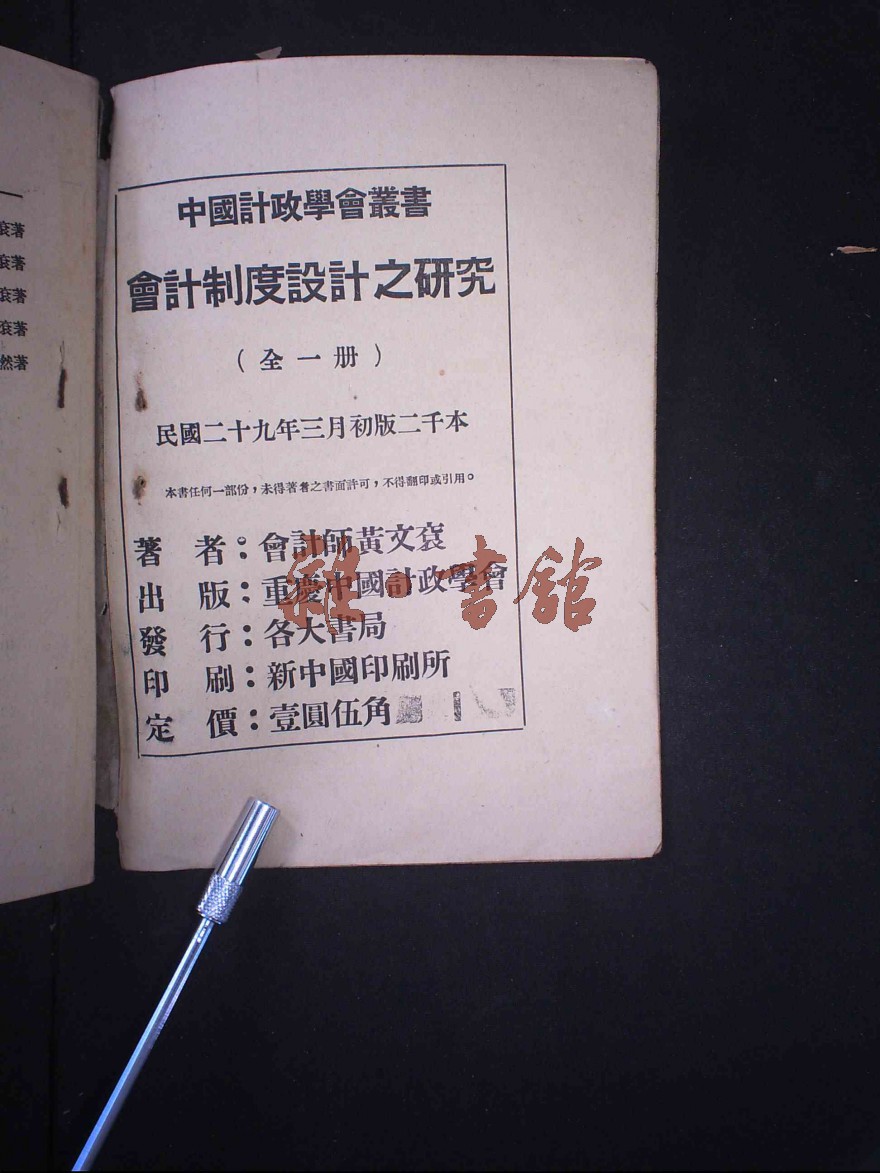 中國計政學會叢書
會計制度設計之研究
（全一册）
民國二十九年三月初版二千本
本書任何一部份，未得著者之書面許可，不得翻印或引用。
著者：會計師黃文袞
出版：重慶中國計政學會
發行：各大書局
印刷：新中國印刷所
定價：壹圓伍角
袞著
袞著
袞著
袞著
然著
雜·書館